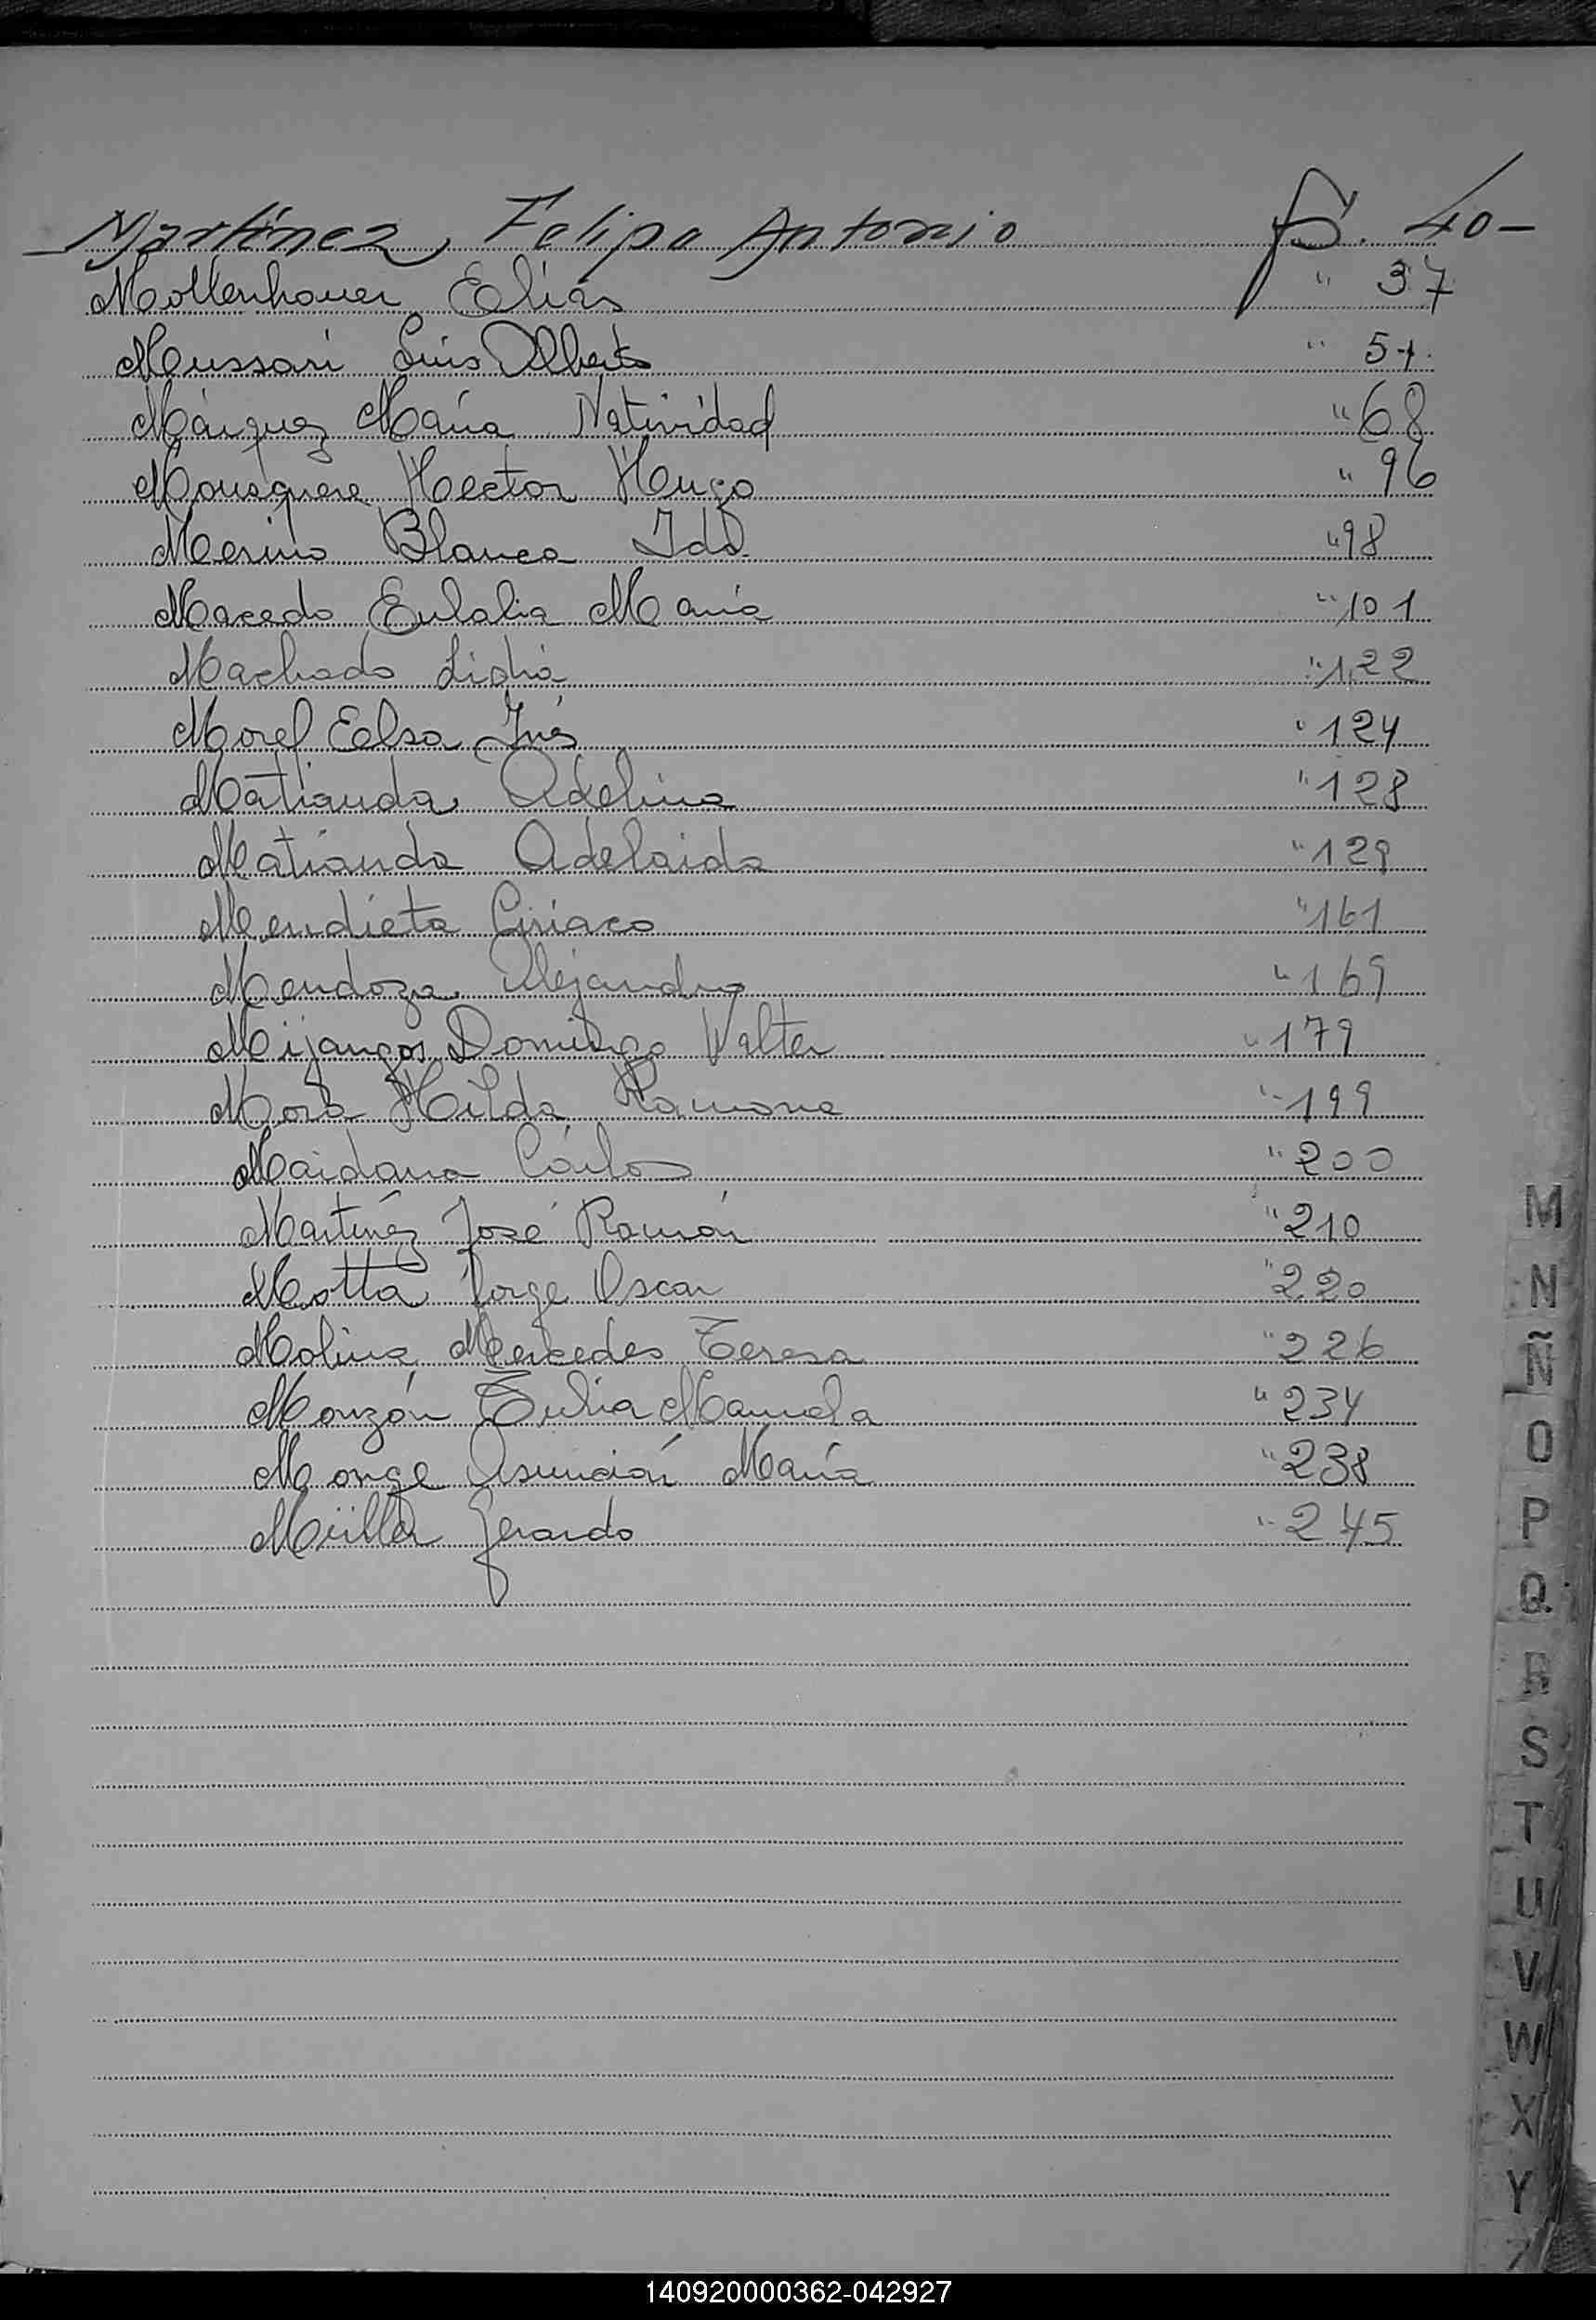 Martínez, Felipe Antonio fs. 40-
Mottenhauer Elías " 37
Mussari Luis Alberto " 51.
Márquez María Natividad " 68
Mousquere Hector Hugo " 96
Merino Blanca Ida " 98
Macedo Eulalia María " 101
Machado Lidia " 122
Morel Eelsa Inés " 124
Matianda Adelina " 128
Matianda Adelaida " 129
Mendieta Ciriaco " 161
Mendoza Alejandro " 169
Mijangos Domingo Walter " 179
Mora Hilda Ramona " 199
Maidana Cárlos " 200
Martínez José Ramón " 210
Motta Jorge Oscar " 220
Molina Mercedes Teresa " 226
Monzón Tulia Manuela " 234
Monge Asunción María " 238
Müller Gerardo " 245
M
N
Ñ
O
P
Q
R
S
T
U
V
W
X
Y
Z
140920000362-042927